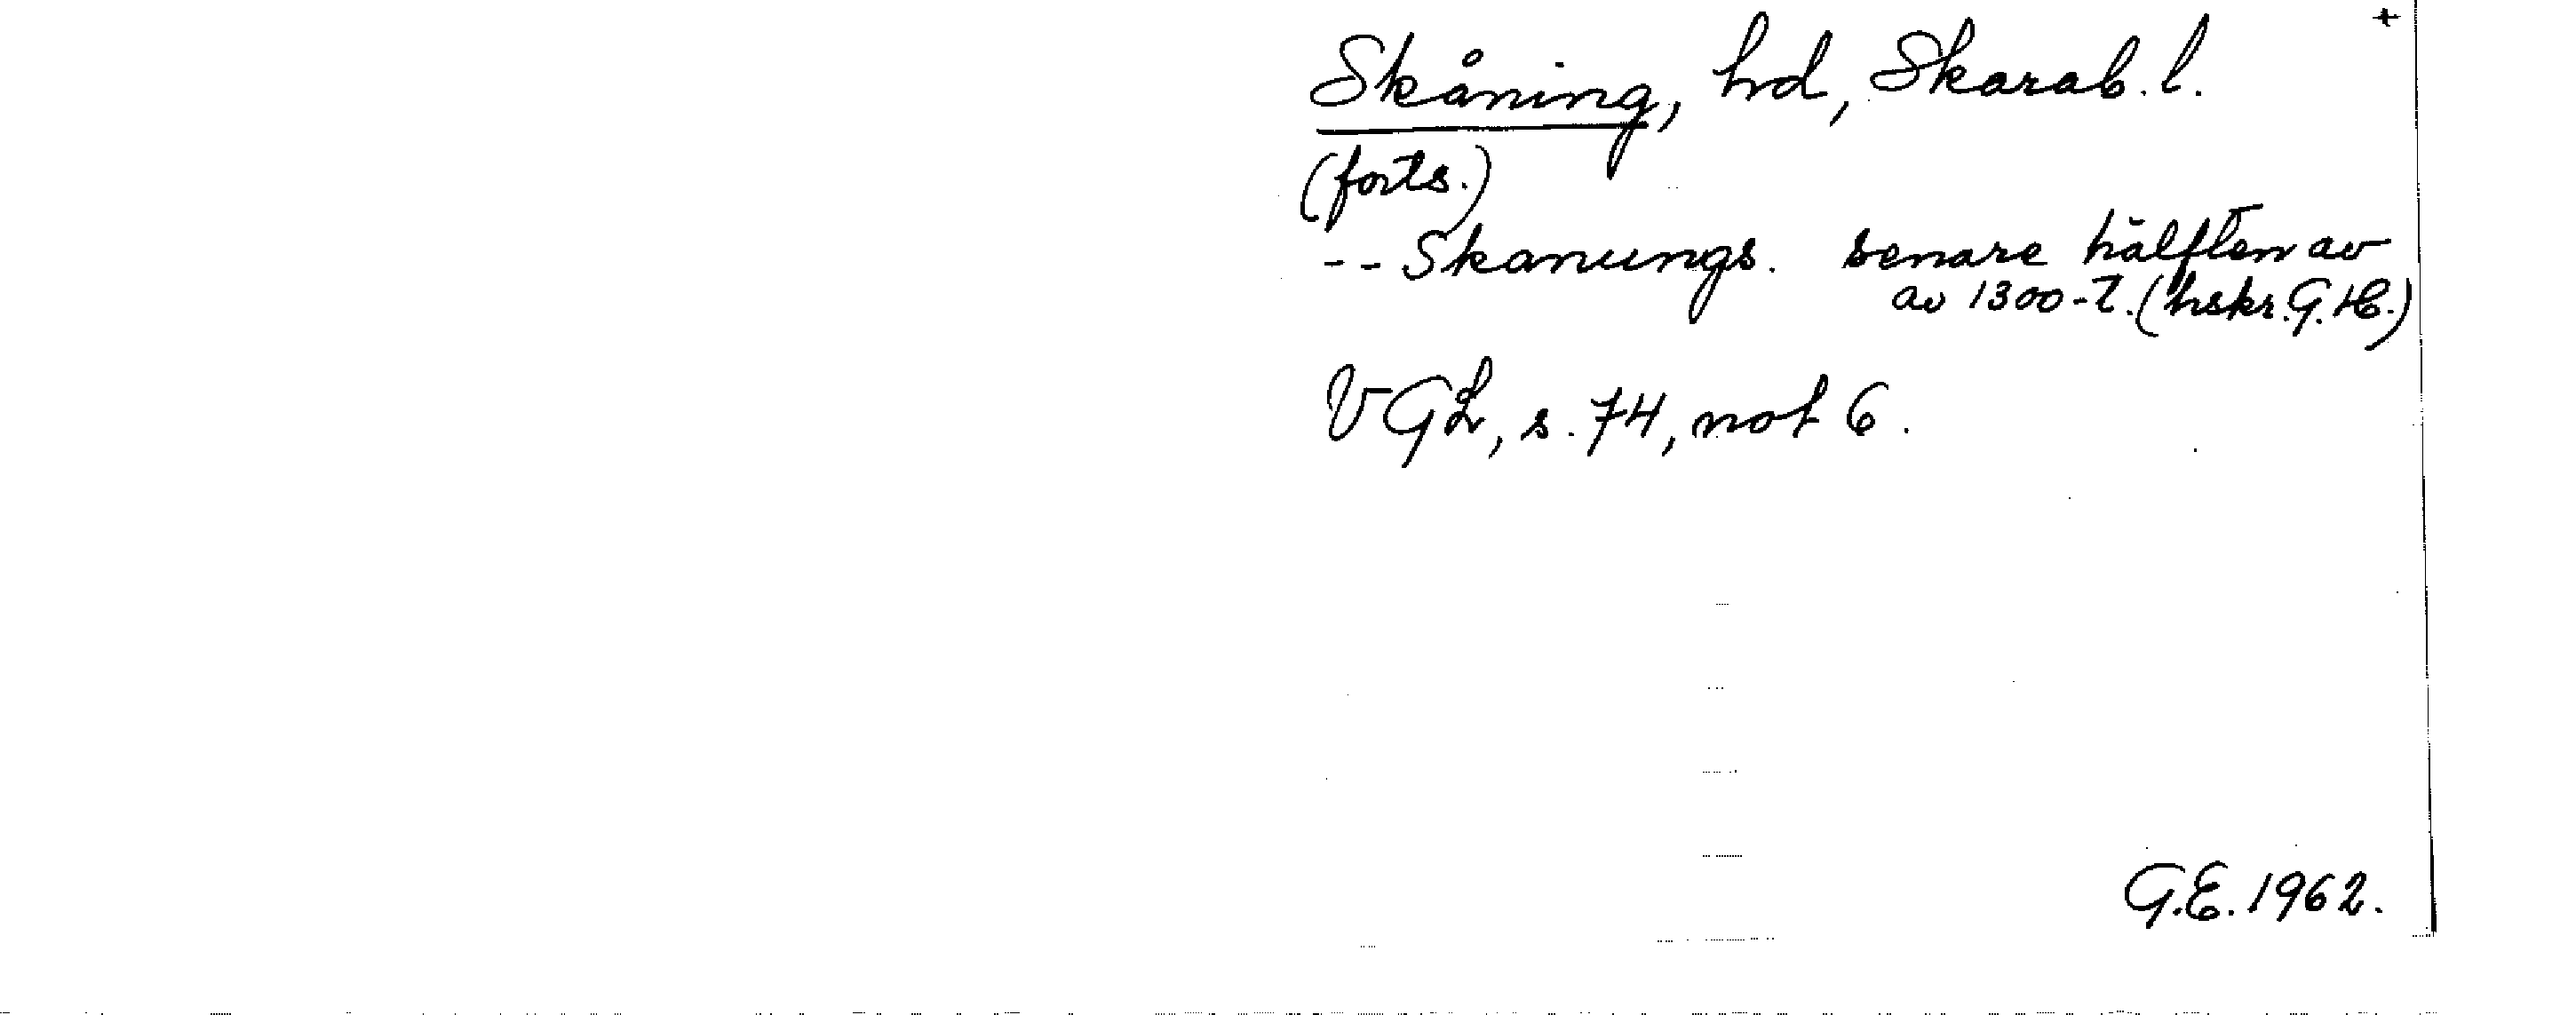 +
Skåning, hd, Skarab. l.
(forts.)
-- Skanungs. senare hälften av
av 1300-t. (hskr. G.H.)
VGL, s. 74, not 6.
G.E. 1962.